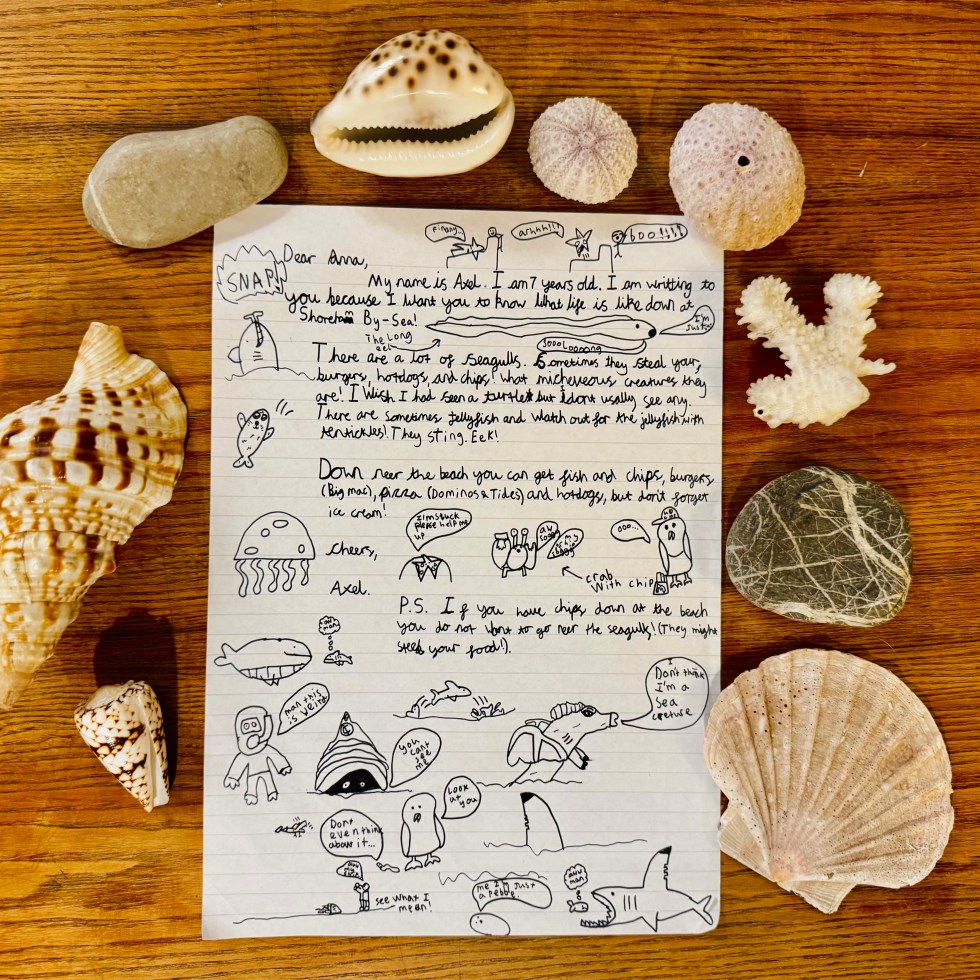 Finally..
arhhh!!!
boo!!!!
SNAP!
Dear Anna,
My name is Axel. I am 7 years old. I am writting to
you because I want you to know what life is like down at
Shoreham By-Sea!
I'm
Just
The Long
eel
sooo Loooong
There are a lot of seagulls. Sometimes they steal your
burgers, hotdogs, and chips! What micheveous creatures they
are! I wish I had seen a turtle but I dont usally see any.
There are sometimes Jellyfish and watch out for the jellyfish with
tentickles! They sting. Eek!
Down neer the beach you can get fish and chips, burgers
(Big mac), pizza (Dominos & Tides) and hotdogs, but don't forget
ice cream!
I'm stuck
please help me
up
aw
soggy
ooo...
crab
with chip
cheers,
Axel.
P.S. If you have chips down at the beach
you do not want to go neer the seagulls! (They might
steel your food!).
aw
man
man this
is weird
I
Don't think
I'm a
sea
creture
you
cant
see
me
Look
at
you
Dont
even think
about it...
see what I
mean!
me I'm Just
a pebble
aww
man